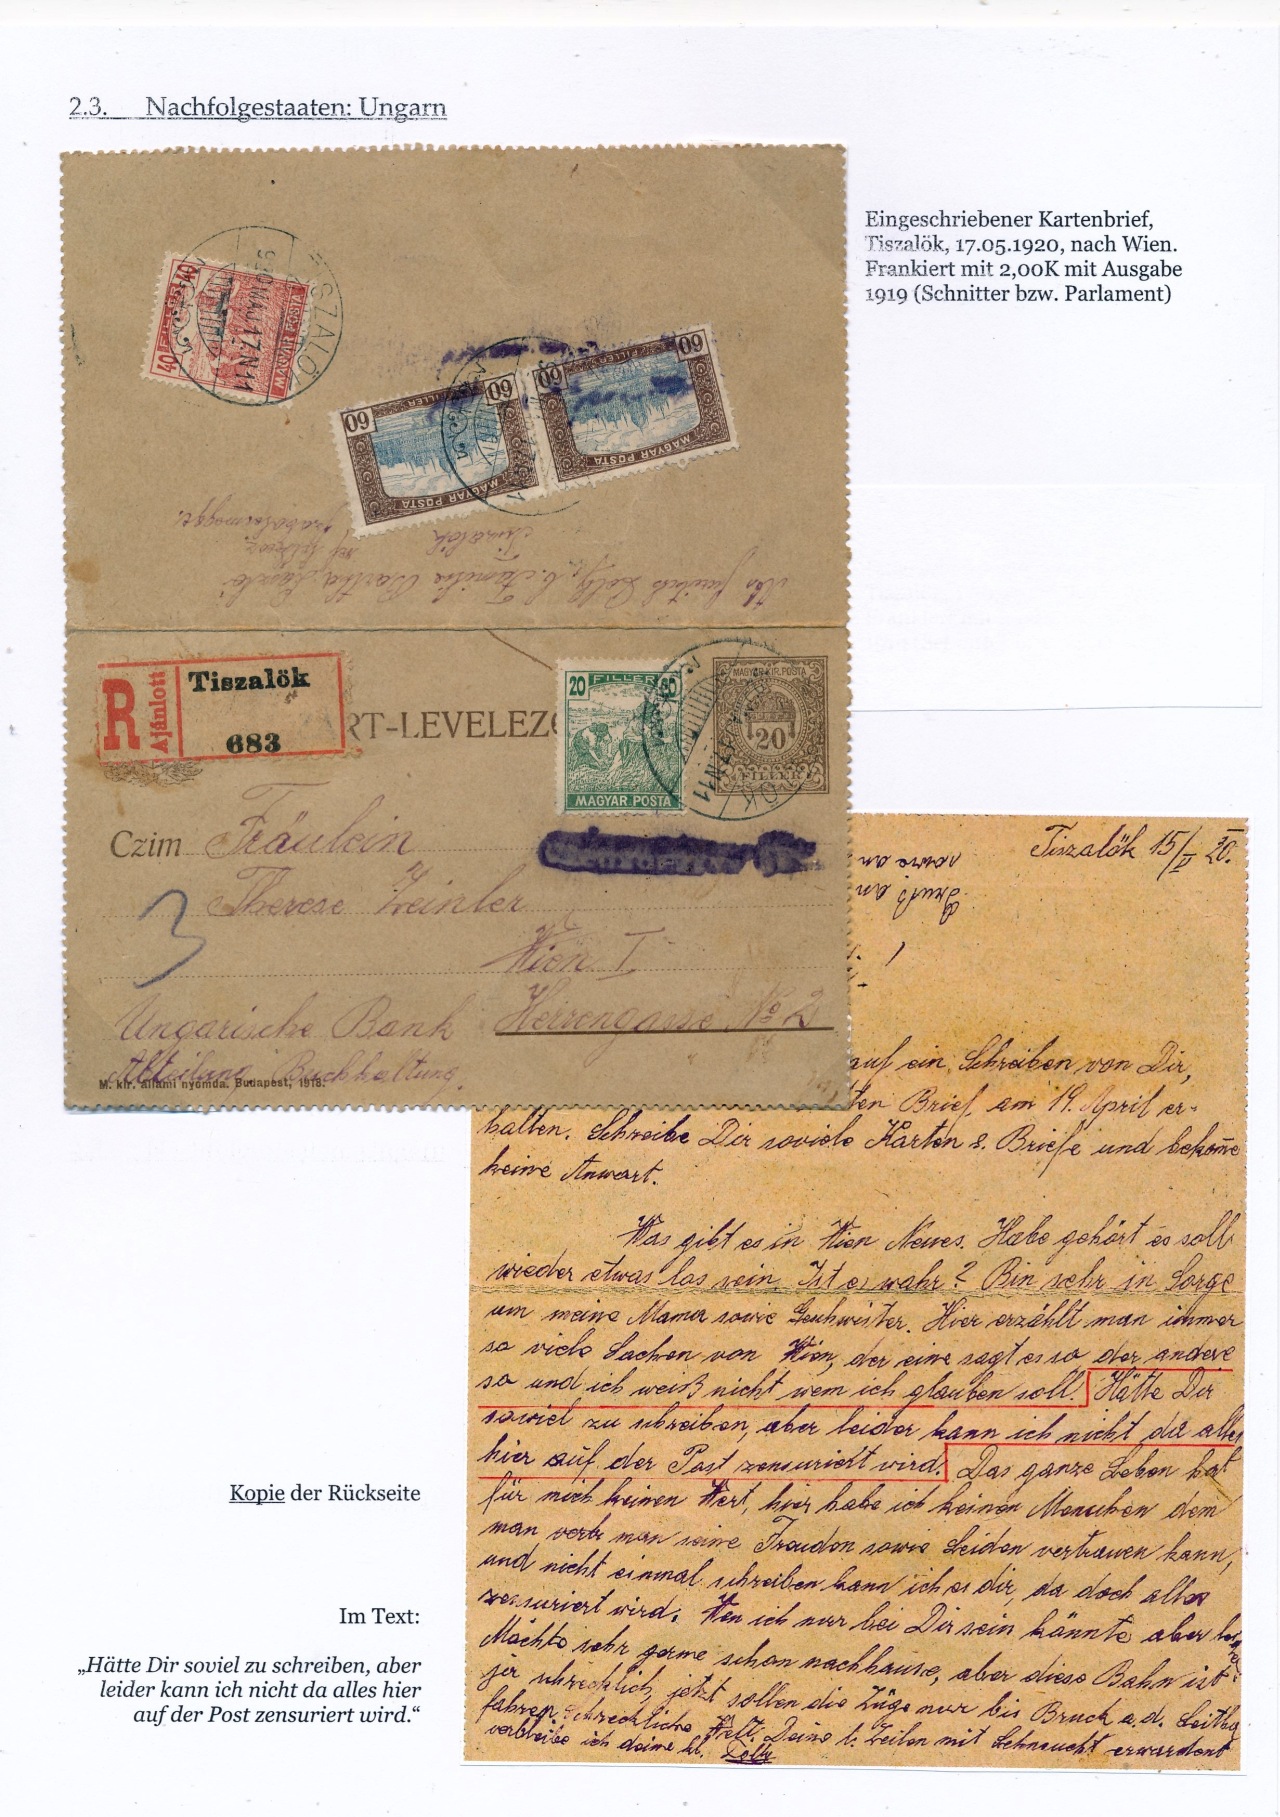 2.3. Nachfolgestaaten: Ungarn
Eingeschriebener Kartenbrief,
Tiszalök, 17.05.1920, nach Wien.
Frankiert mit 2,00K mit Ausgabe
1919 (Schnitter bzw. Parlament)
40 FILLÉR 40
MAGYAR POSTA
TISZALÖK
920 MÁJ 17 N11
60 FILLÉR 60
MAGYAR POSTA
60 FILLÉR 60
MAGYAR POSTA
Familie Bartha
Tiszalök
R Ajánlott
Tiszalök
683
ÁRT-LEVELEZŐ
20 FILLÉR 20
MAGYAR POSTA
MAGYAR KIR. POSTA
20
FILLÉR
Czim Fräulein
Therese Zeinler
Wien I
3
Ungarische Bank Herrengasse No 2
Abteilung Buchhaltung.
M. kir. állami nyomda. Budapest, 1918.
Tiszalök 15/V 20.
sowie an
Gruß an
auf ein Schreiben von Dir,
ten Brief am 19. April er-
halten. Schreibe Dir soviele Karten s. Briefe und bekome
keine Anwort.
Was gibt es in Wien Neues. Habe gehört es soll
wieder etwas los sein. Ist es wahr? Bin sehr in Sorge
um meine Mama sowie Geschwister. Hier erzählt man immer
so viele Sachen von Wien, der eine sagt es so der andere
so und ich weiß nicht wem ich glauben soll. Hätte Dir
soviel zu schreiben, aber leider kann ich nicht da alles
hier auf der Post zensuriert wird. Das ganze Leben hat
für mich keinen Wert, hier habe ich keinen Menschen dem
man seine Freuden sowie Leiden vertrauen kann,
und nicht einmal schreiben kann ich es dir, da doch alles
zensuriert wird. Wen ich nur bei Dir sein könnte aber
Möchte sehr gerne schon nachhause, aber diese Bahn ist
ja schrecklich, jetzt sollen die Züge nur bis Bruck a. d. Leitha
fahren. Schreckliche Welt. Deine l. Zeilen mit Sehnsucht erwardent
verbleibe ich deine
Kopie der Rückseite
Im Text:
„Hätte Dir soviel zu schreiben, aber
leider kann ich nicht da alles hier
auf der Post zensuriert wird.“